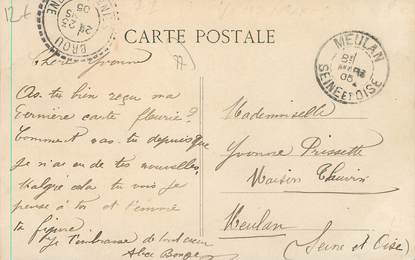 12 f
CARTE POSTALE
BROU
23
05
MEULAN
05
SEINE ET OISE
77
Chère Yvonne
As-tu bien reçu ma
dernière carte fleurie?
Comment vas-tu depuis que
je n'ai eu de tes nouvelles
Malgré cela tu vois je
pense à toi et
ta figure
Je t'embrasse de tout cœur
Alice
Mademoiselle
Yvonne Prissette
Maison
Meulan
(Seine et Oise)